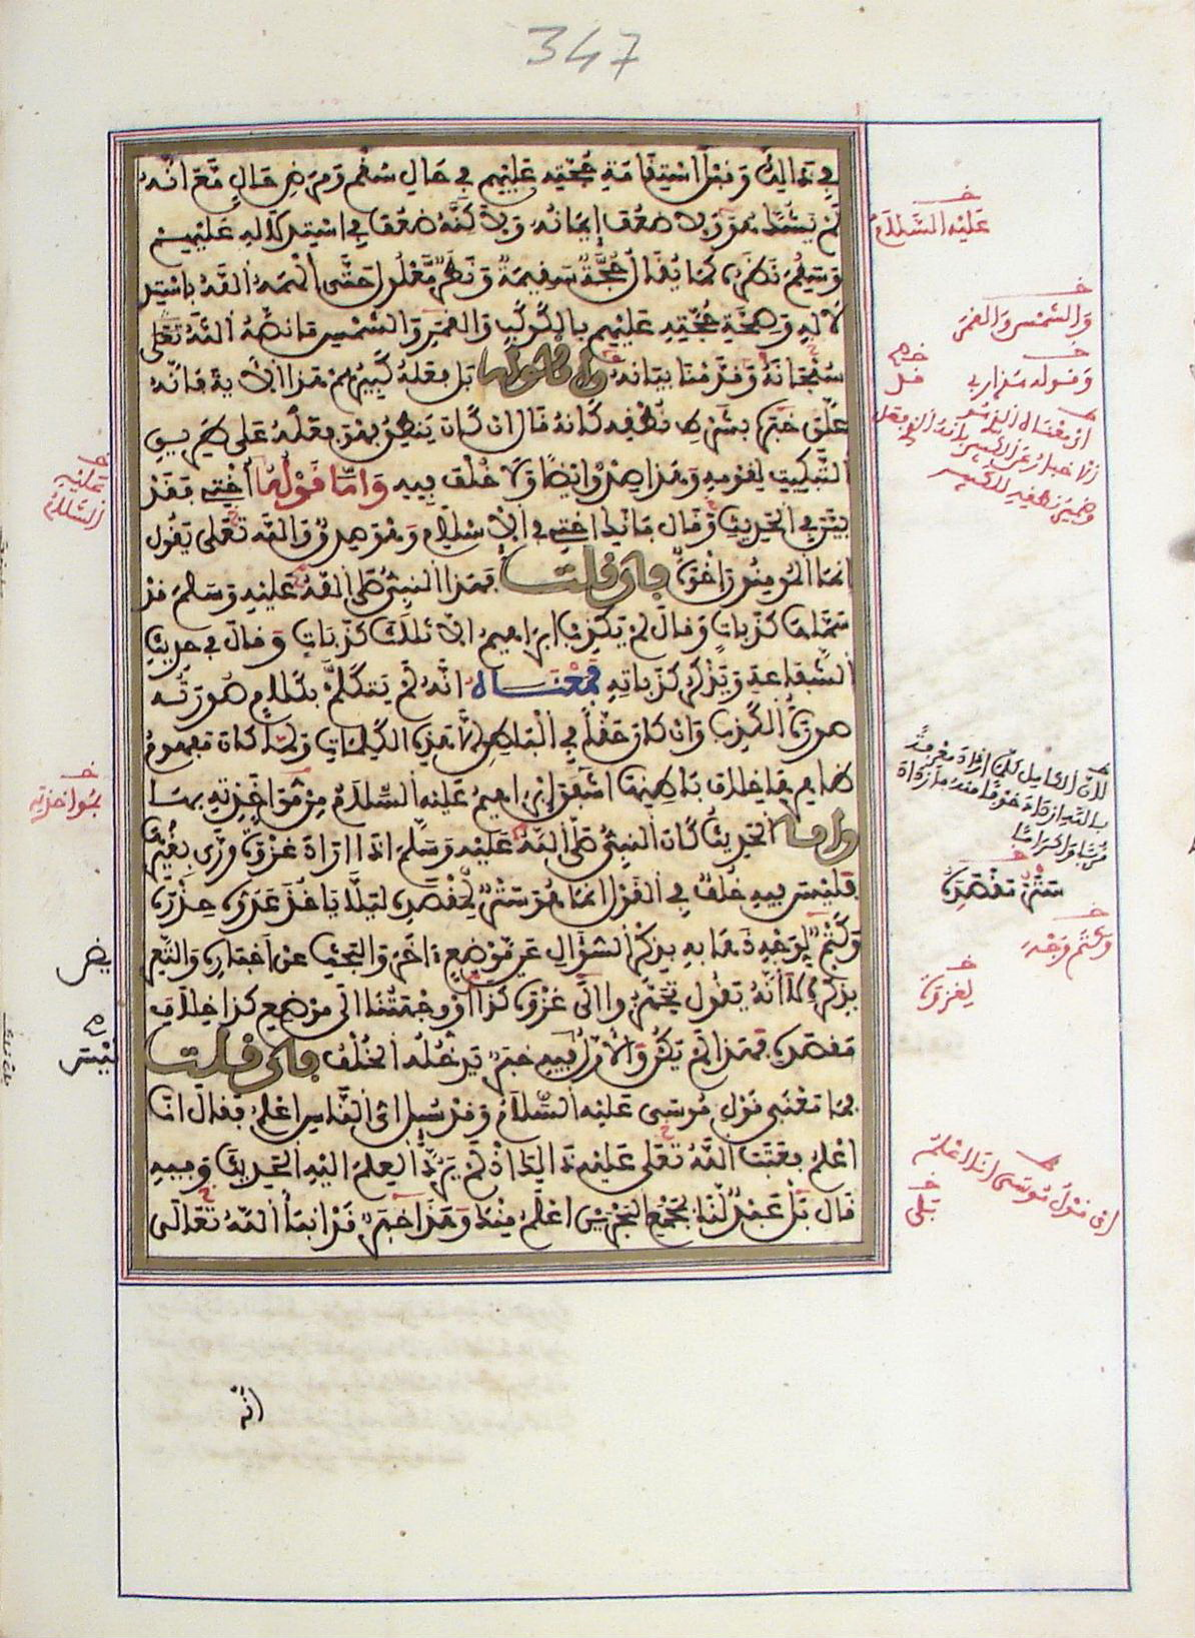 347
في ذالك وقبل استقامة حجته عليهم في حال سقم ومرض حال مع انه
لم يشك هو ولا ضعف ايمانه ولاكنه ضعف في استدلاله عليهم
وسقم نظره كما يقال حجة سقيمة ونظر معلول حتى الهمه الله باستد
لاله وصحة حجته عليهم بالكوكب والقمر والشمس ما نصه الله تعلى
سبحانه وقدمنا بيانه واما قوله بل فعله كبيرهم هذا الاية فانه
علق خبره بشرط نطقه كانه قال ان كان ينطق فهو فعله على طريق
التبكيت لقومه وهذا صدق ايضا ولا خلف فيه واما قوله اختي فقد
بين في الحديث وقال فانك اختي في الاسلام وهو صدق والله تعلى يقول
انما المومنون اخوة فان قلت فهذا النبي صلى الله عليه وسلم قد
سماها كذبات وقال لم يكذب ابرهيم الا ثلث كذبات وقال في حديث
الشفاعة ويذكر كذباته فمعناه انه لم يتكلم بكلام صورته
صورة الكذب وان كان حقا في الباطن الا هذه الكلمات ولما كان مفهوم
ظاهرها خلاف باطنها اشفق ابرهيم عليه السلام من مؤاخذته بها
واما الحديث كان النبي صلى الله عليه وسلم اذا اراد غزوة ورى بغيرها
فليس فيه خلف في القول انما هو ستر مقصده ليلا ياخذ عدوه حذره
وكتم لوجه ذهابه بذكر السؤال عن موضع ءاخر والبحث عن اخباره والتعريض
بذكره لا انه يقول تجهزوا الى غزوة كذا او وجهتنا الى موضع كذا خلاف
مقصده فهذا لم يكن والاول ليس فيه خبر يدخله الخلف فان قلت
فما معنى قول موسى عليه السلام وقد سئل اي الناس اعلم فقال انا
اعلم فعتب الله تعلى عليه ذالك اذ لم يرد العلم اليه الحديث وفيه
قال بل عبد لنا بمجمع البحرين اعلم منك وهذا خبر قد انبأ الله تعالى
انه
عليه السلام
والشمس والقمر
وقوله هذا ربي
عليه السلام
بمؤاخذته
ستر مقصده
وكتم وجه
لغزوة
اى قول موسى انا اعلم
بلى